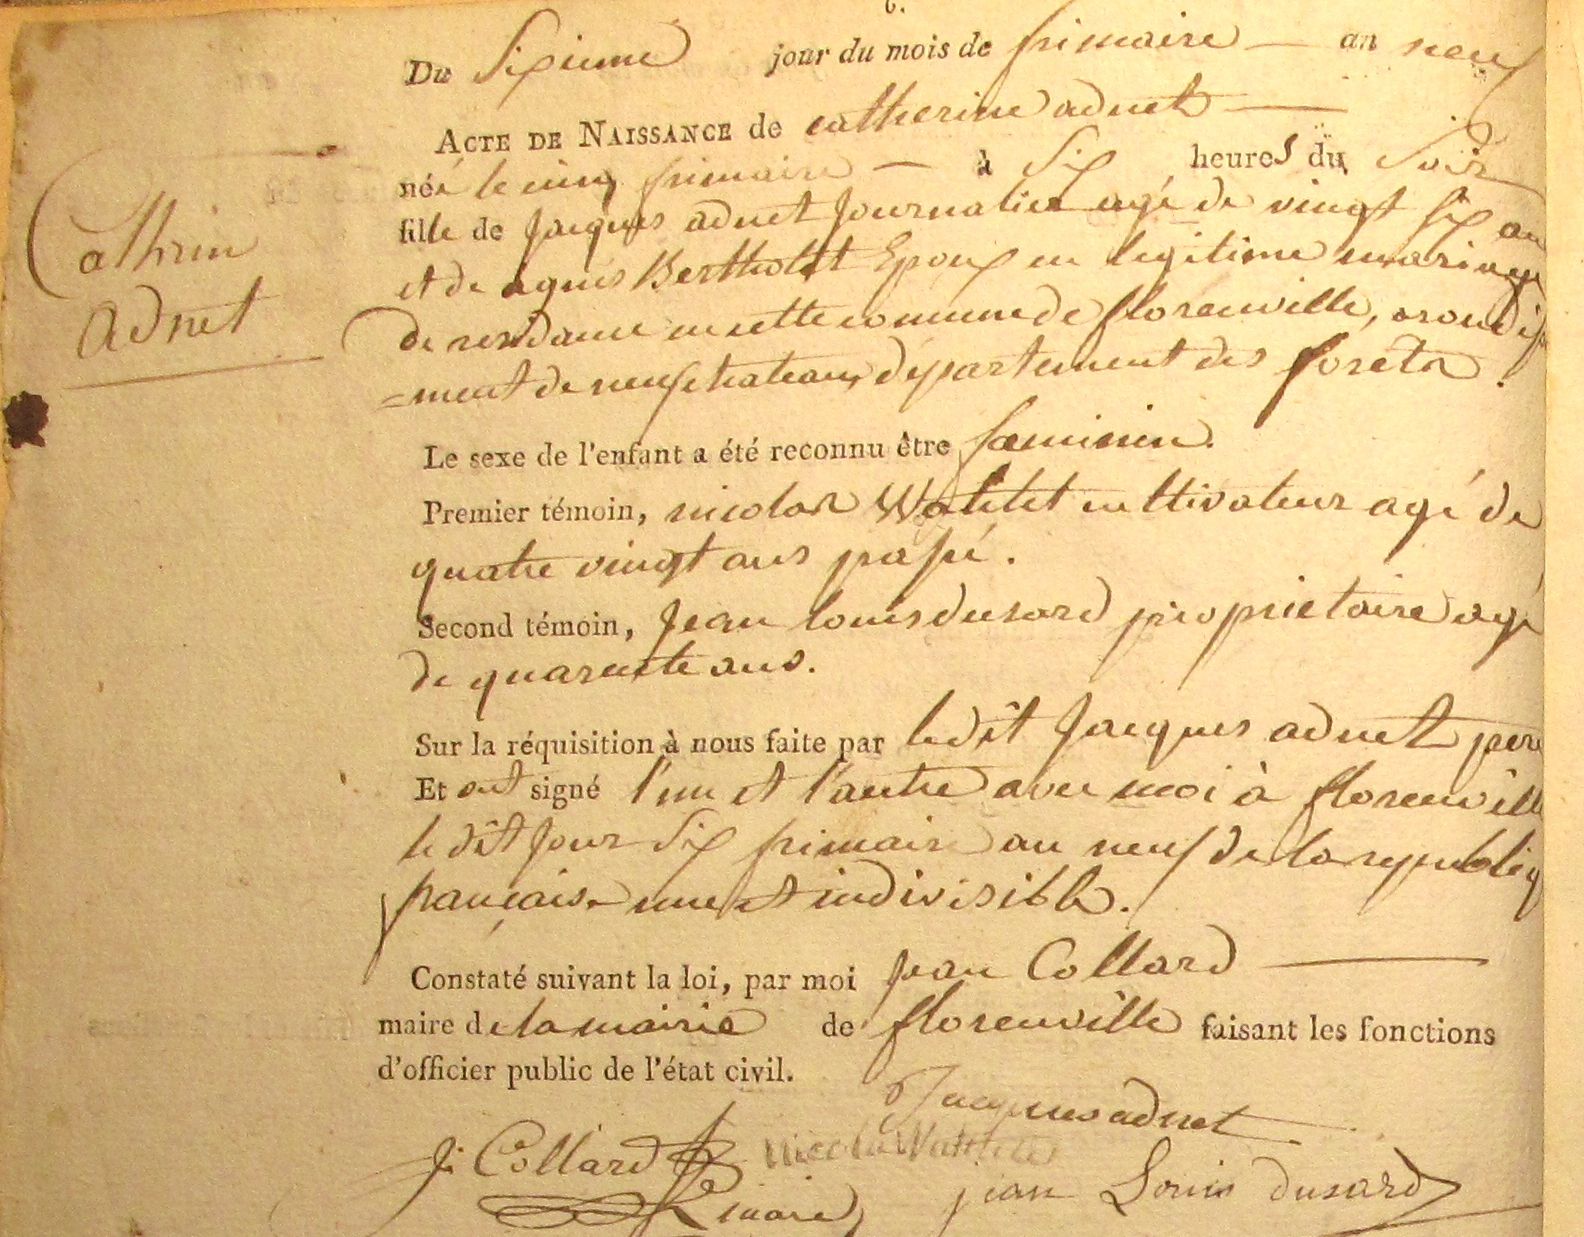 6.
Du Sixieme jour du mois de frimaire an neuf
ACTE DE NAISSANCE de catherine adnet
Cathrin
adnet
née le cinq frimaire à Six heures du Soir
fille de Jacques adnet Journalier agé de vingt Six an
et de agnes Bertholet Epoux en legitime mariage
de residance en cette commune de florenville, arondiss
=ment de neufchateau, département des forets.
Le sexe de l'enfant a été reconnu être fœminin.
Premier témoin, nicolas Watelet cultivateur agé de
quatre vingt ans passé.
Second témoin, Jean louis dusard proprietaire agé
de quarente ans.
Sur la réquisition à nous faite par ledit Jacques adnet pere
Et ont signé l'un et l'autre avec moi à florenville
le dit Jour Six frimaire an neuf de la republiq
française une et indivisible.
Constaté suivant la loi, par moi Jean Collard
maire de la mairie de florenville faisant les fonctions
d'officier public de l'état civil.
Jacques adnet
J. Collard nicola
maire jean Louis dusard